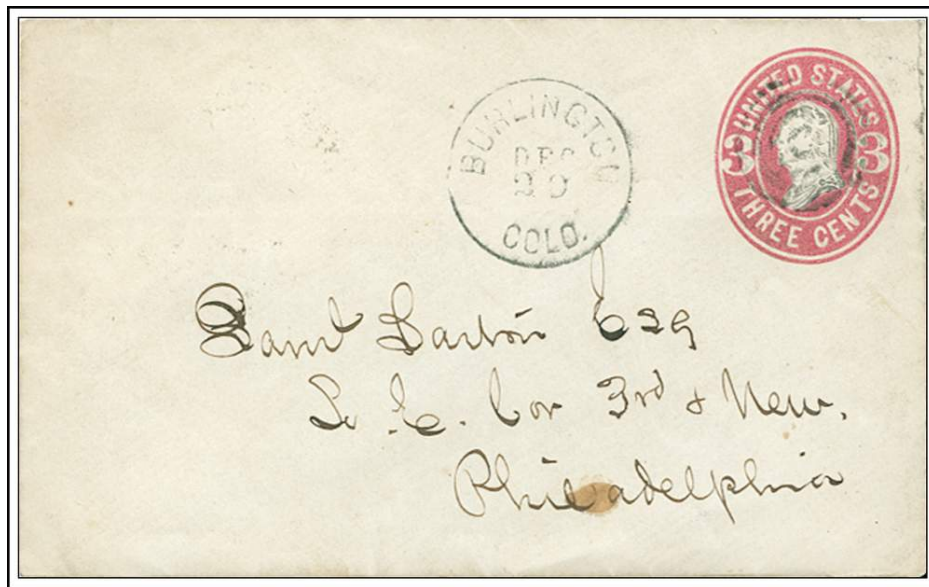 BURLINGTON
DEC
29
COLO.
UNITED STATES
3 3
THREE CENTS
Saml Esq
S. E. Cor 3rd & New.
Philadelphia